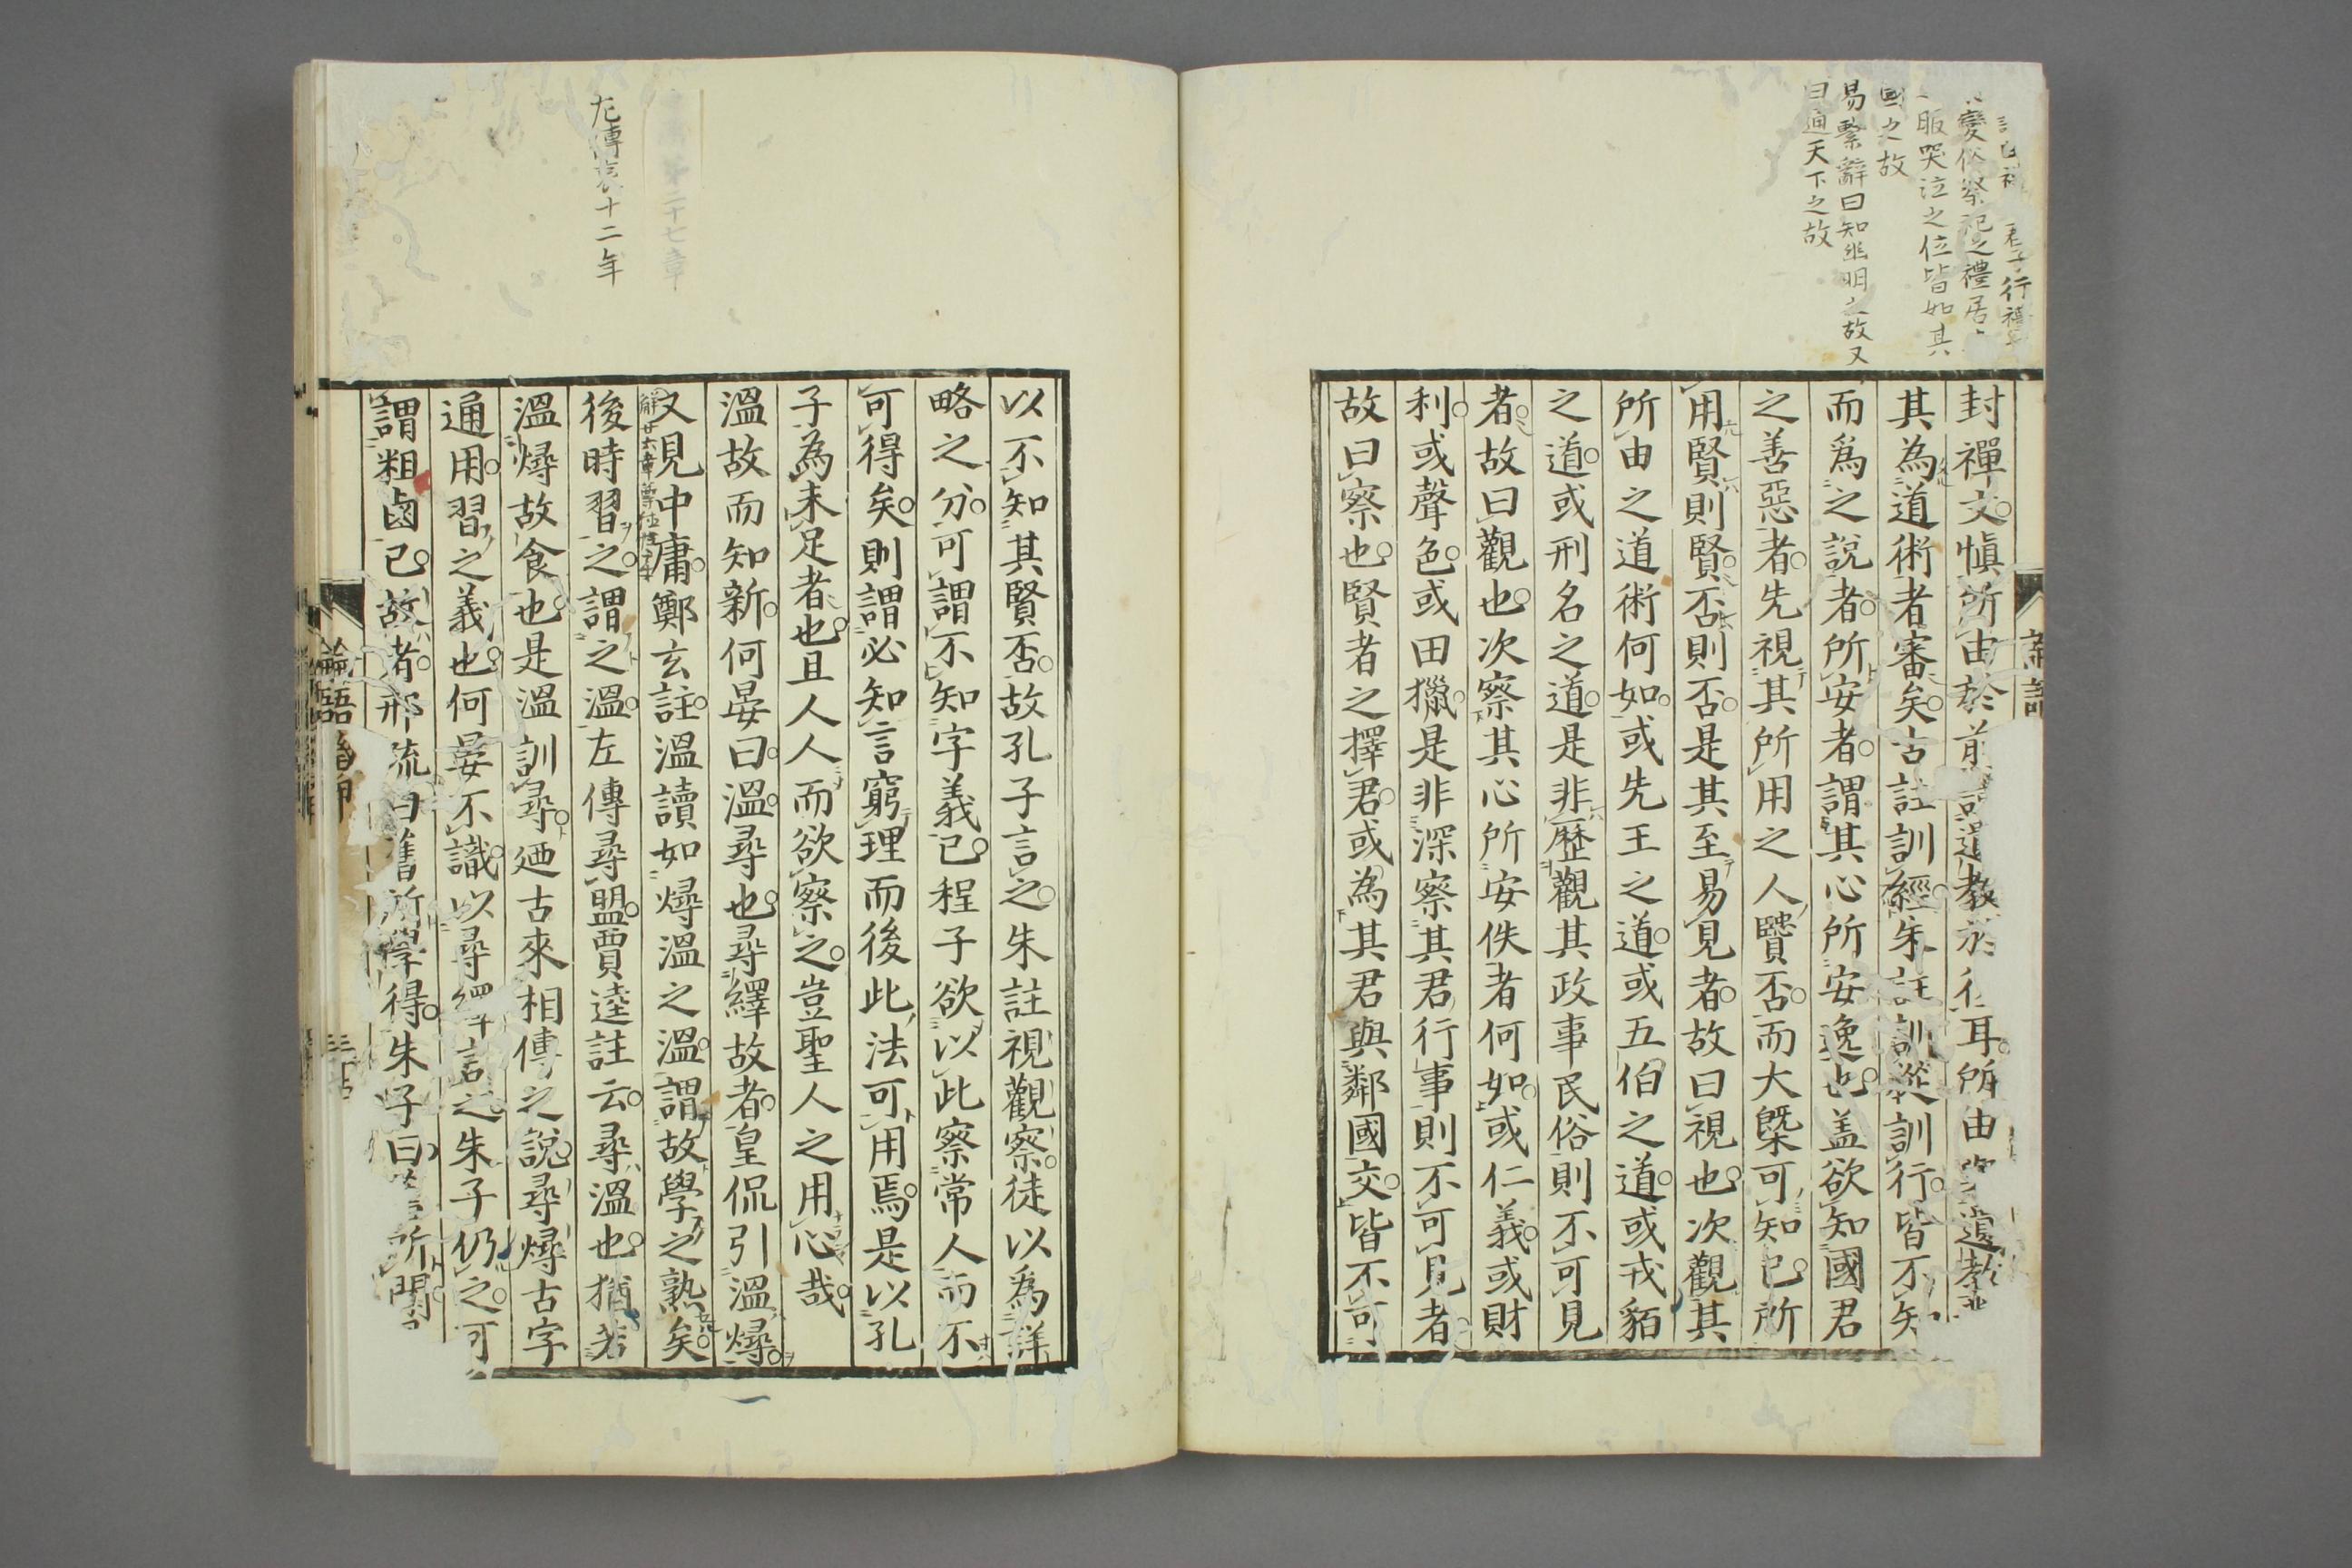 君子行禮
變俗祭祀之禮居
服哭泣之位皆如其
國之故
易繫辭曰知幽明之故又
曰通天下之故
封禪文愼所由於前謹遺教於後耳所由遺教
其為道術者審矣古註訓經朱註訓從訓行皆不知
而爲之說者所安者謂其心所安逸也盖欲知國君
之善惡者先視其所用之人賢否而大槩可知已所
用賢則賢否則否是其至易見者故曰視也次觀其
所由之道術何如或先王之道或五伯之道或戎貊
之道或刑名之道是非歷觀其政事民俗則不可見
者故曰觀也次察其心所安佚者何如或仁義或財
利或聲色或田獵是非深察其君行事則不可見者
故曰察也賢者之擇君或為其君與鄰國交皆不可
左傳哀十二年
第二十七章
以不知其賢否故孔子言之朱註視觀察徒以爲詳
略之分可謂不知字義已程子欲以此察常人而不
可得矣則謂必知言窮理而後此法可用焉是以孔
子為未足者也且人人而欲察之豈聖人之用心哉
溫故而知新何晏曰溫尋也尋繹故者皇侃引溫燖
又見中庸鄭玄註溫讀如燖溫之溫謂故學之熟矣
後時習之謂之溫左傳尋盟賈逵註云尋溫也猶若
溫燖故食也是溫訓尋廼古來相傳之說尋燖古字
通用習之義也何晏不識以尋繹言之朱子仍之可
謂粗鹵已故者邢疏曰舊所學得朱子曰所聞
論語